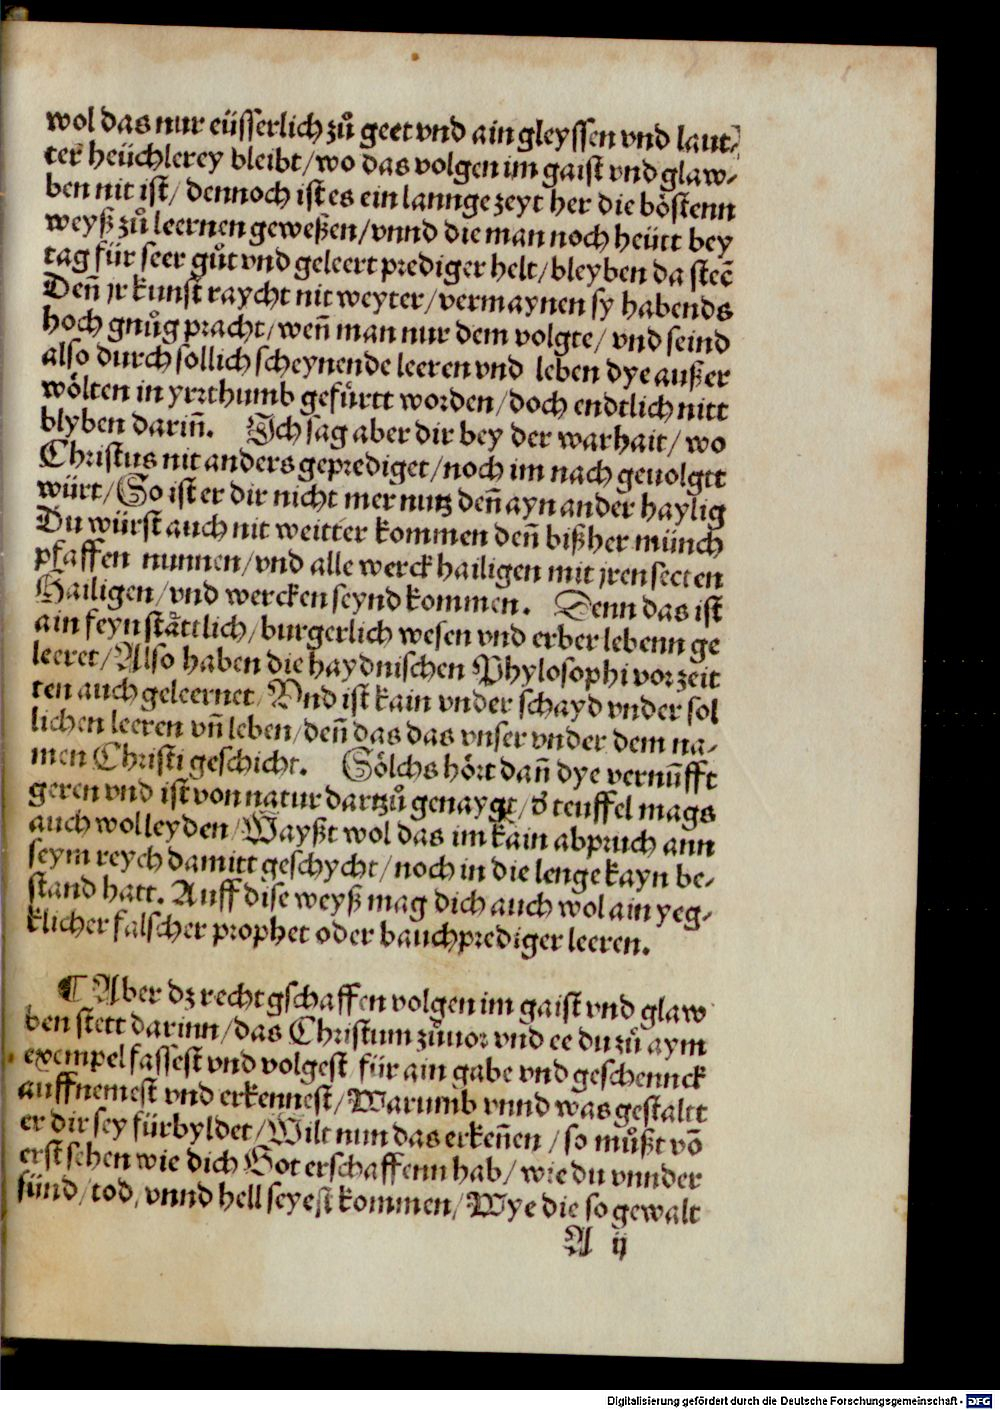 wol das nur eüsserlich zů geet vnd ain gleyssen vnd laut⸗
ter heüchlerey bleibt/ wo das volgen im gaist vnd glaw⸗
ben nit ist/ dennoch ist es ein lannge zeyt her die böstenn
weyß zů leernen geweßen/ vnnd die man noch heütt bey
tag für seer gůt vnd geleert prediger helt/ bleyben da steẽ
Deñ jr kunst raycht nit weyter/ vermaynen sy habends
hoch gnůg pracht/ weñ man nur dem volgte/ vnd seind
also durch sollich scheynende leeren vnd leben dye außer
wölten in yrrthumb gefürtt worden/ doch endtlich nitt
blyben dariñ. Ich sag aber dir bey der warhait/ wo
Christus nit anders geprediget/ noch im nach geuolgtt
würt/ So ist er dir nicht mer nutz deñ ayn ander haylig
Du würst auch nit weitter kommen deñ bißher münch
pfaffen nunnen/ vnd alle werck hailigen mit jren secten
Hailigen/ vnd wercken seynd kommen. Denn das ist
ain feyn stättlich/ burgerlich wesen vnd erber lebenn ge
leeret/ Also haben die haydnischen Phylosophi vor zeit
ten auch geleernet/ Vnd ist kain vnder schayd vnder sol
lichen leeren vñ leben/ deñ das das vnser vnder dem na⸗
men Christi geschicht. Sölchs hört dañ dye vernũfft
geren vnd ist von natur dartzů genaygt/ d teuffel mags
auch wol leyden/ Wayßt wol das im kain abpruch ann
seym reych damitt geschycht/ noch in die lenge kayn be⸗
stand hatt. Auff dise weyß mag dich auch wol ain yeg⸗
klicher falscher prophet oder bauchprediger leeren.
¶ Aber dz recht gschaffen volgen im gaist vnd glaw
ben stett darinn/ das Christum zůuor vnd ee du zů aym
exempel fassest vnd volgest für ain gabe vnd geschennck
auffnemest vnd erkennest/ Warumb vnnd was gestaltt
er dir sey fürbyldet/ Wilt nun das erkeñen/ so můßt võ
erst sehen wie dich Got erschaffenn hab/ wie du vnnder
sünd/ tod/ vnnd hell seyest kommen/ Wye die so gewalt
A ij
Digitalisierung gefördert durch die Deutsche Forschungsgemeinschaft - DFG